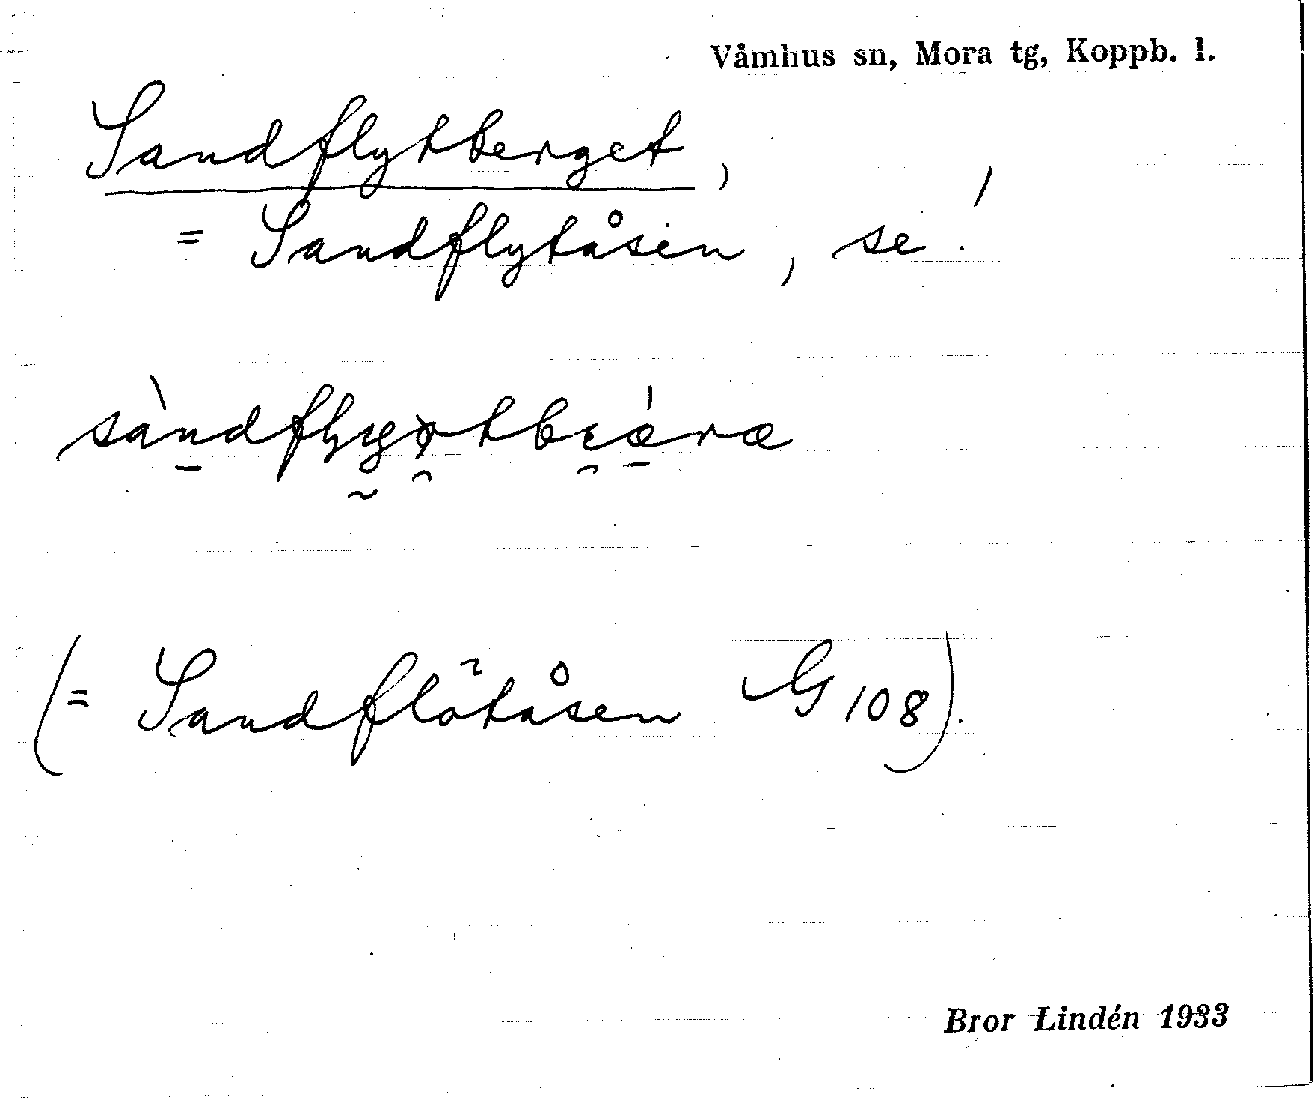 Våmhus sn, Mora tg, Koppb. l.
Sandflytberget,
= Sandflytåsen, se!
(= Sandflötåsen G 108).
Bror Lindén 1933